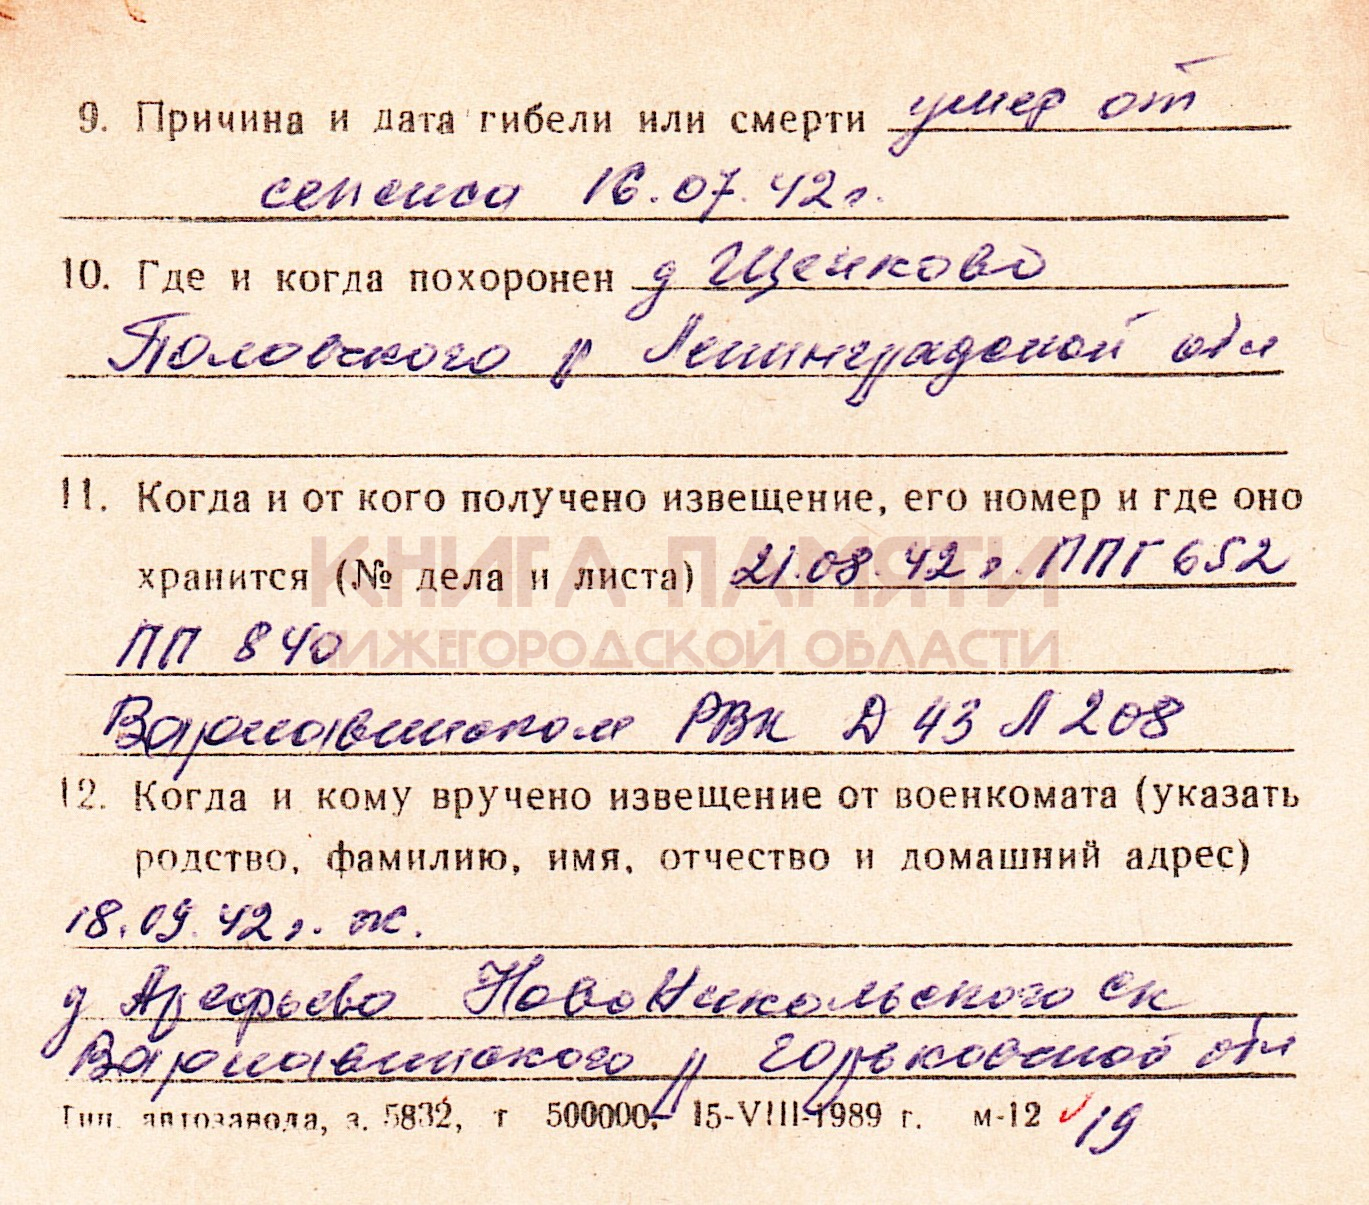 9. Причина и дата гибели или смерти умер от
сепсиса 16.07.42г.
10. Где и когда похоронен д Щечково
Половского р Ленинградской обл
11. Когда и от кого получено извещение, его номер и где оно
хранится (№ дела и листа) 21.08.42 г. ППГ 652
КНИГА ПАМЯТИ
НИЖЕГОРОДСКОЙ ОБЛАСТИ
ПП 840
Варнавинском РВк Д 43 Л 208
12. Когда и кому вручено извещение от военкомата (указать
родство, фамилию, имя, отчество и домашний адрес)
18.09.42 г. ж.
д Арефьево НовоНикольского ск
Варнавинского р Горьковской обл
Тип. автозавода, з. 5832, т 500000, 15-VIII-1989 г. м-12 19